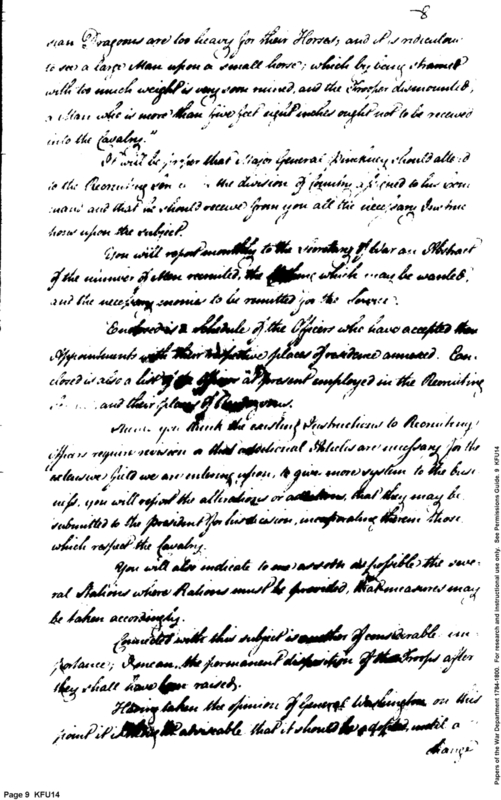 8
sian Dragoons are too heavy for their Horses; and it is ridiculous
to see a large Man upon a small horse; which by being strained
with too much weight is very soon ruined, and the Trooper dismounted,
a Man who is more than five feet eight inches ought not to be received
into the Cavalry."
It will be proper that Major General Pinckney should attend
to the Recruiting in the division of Country assigned to his com
mand and that he should receive from you all the necessary Instruc
tions upon the subject.
You will report monthly to the Secretary of War an Abstract
of the number of Men recruited, the which may be wanted,
and the necessary monies to be remitted for the Service.
Enclosed is a Schedule of the Officers who have accepted their
Appointments with their respective places of residence annexed. En
closed is also a list of the Officers at present employed in the Recruiting
and their places of Rendezvous.
Should you think the existing Instructions to Recruiting
Officers require revision or that additional Articles are necessary for the
extensive field we are entering upon, to give more system to the busi
ness, you will report the alterations or additions, that they may be
submitted to the President for his decision, incorporating therein those
which respect the Cavalry.
You will also indicate to me as soon as possible the seve
ral Stations where Rations must be provided, that measures may
be taken accordingly.
Connected with this subject is another of considerable im
portance; I mean, the permanent disposition of the Troops after
they shall have been raised.
Having taken the opinion of General Washington on this
point it is advisable that it should be adopted, until a
change
Page 9 KFU14
Papers of the War Department 1784-1800. For research and instructional use only. See Permissions Guide. 9 KFU14